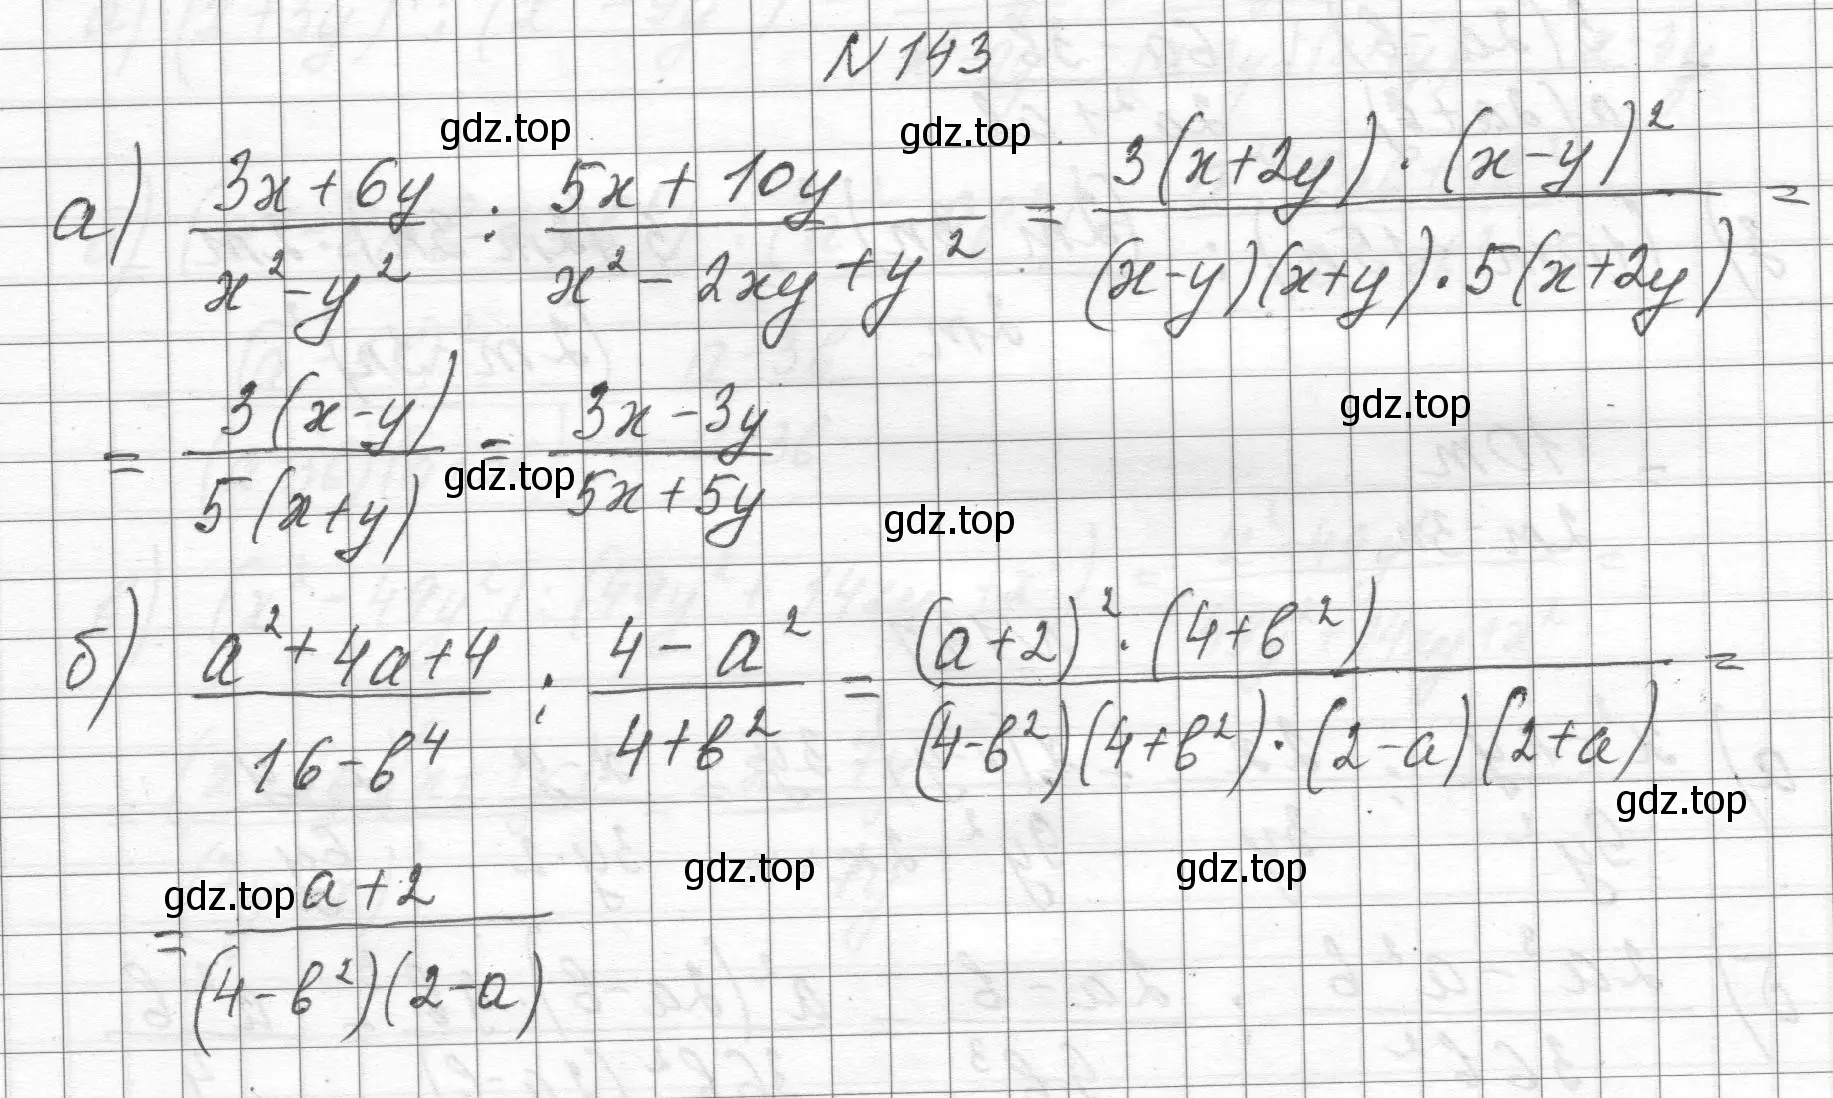 N 143
gdz.top gdz.top
а) (3x + 6y)/(x² - y²) : (5x + 10y)/(x² - 2xy + y²) = (3(x+2y) · (x-y)²)/((x-y)(x+y) · 5(x+2y)) =
gdz.top
= (3(x-y))/(5(x+y)) = (3x - 3y)/(5x + 5y)
gdz.top gdz.top
б) (a² + 4a + 4)/(16 - b⁴) : (4 - a²)/(4 + b²) = ((a+2)² · (4+b²))/((4-b²)(4+b²) · (2-a)(2+a)) =
gdz.top
gdz.top gdz.top gdz.top
= (a+2)/((4-b²)(2-a))